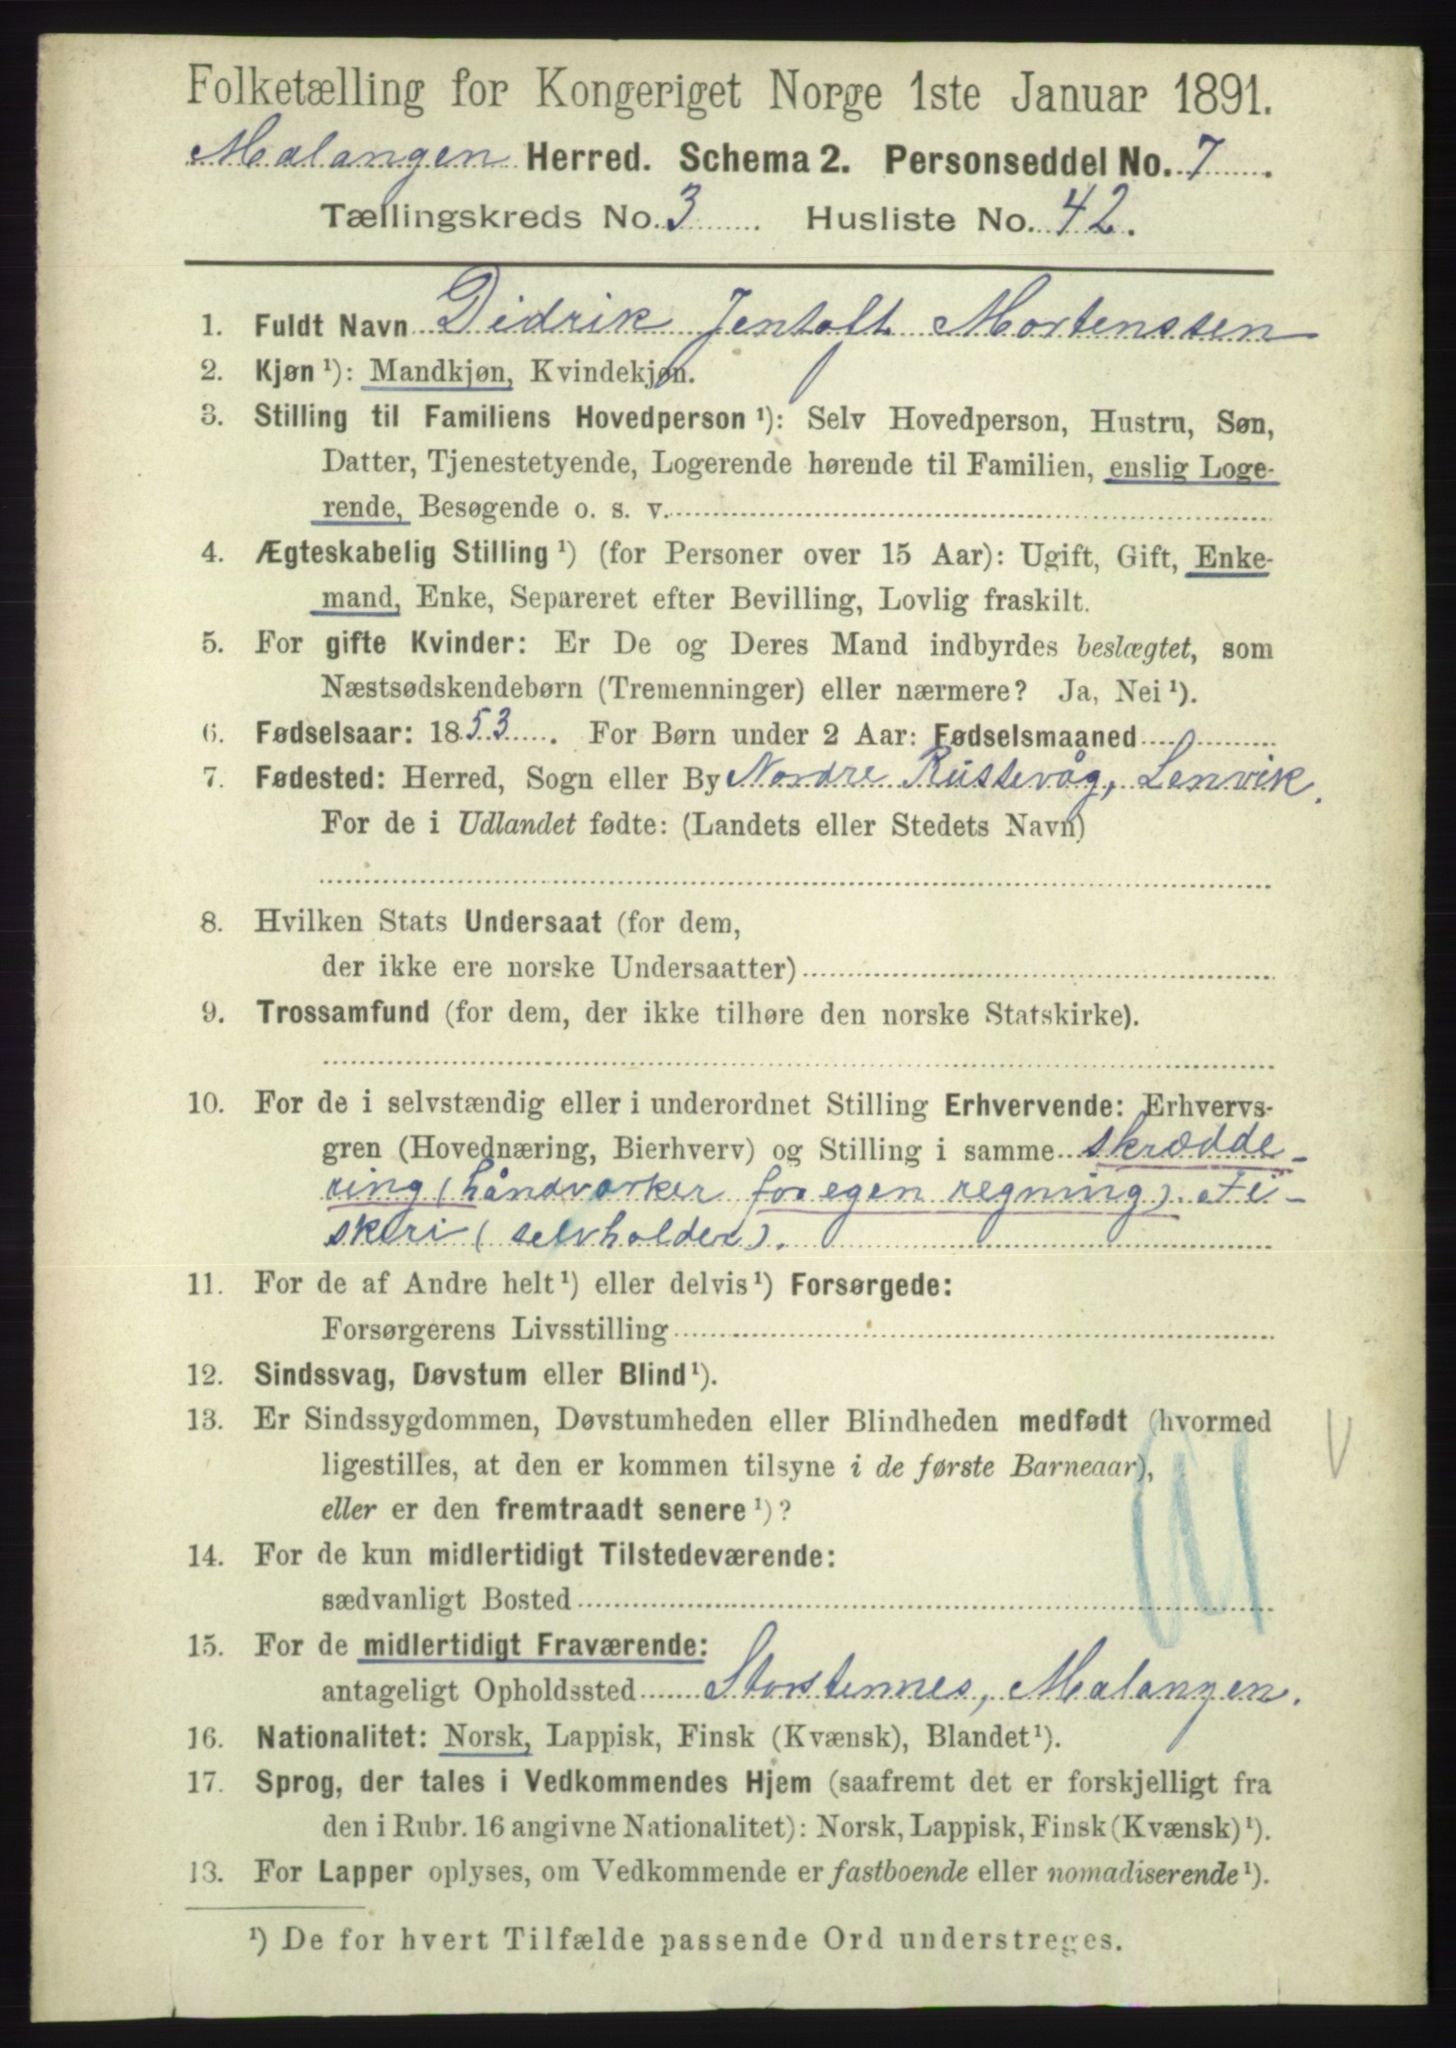 Folketælling for Kongeriget Norge 1ste Januar 1891.
Malangen Herred. Schema 2. Personseddel No. 7
Tællingskreds No. 3 Husliste No. 42.
1. Fuldt Navn Didrik Jentoft Mortenssen
2. Kjøn ¹): Mandkjøn, Kvindekjøn.
3. Stilling til Familiens Hovedperson ¹): Selv Hovedperson, Hustru, Søn,
Datter, Tjenestetyende, Logerende hørende til Familien, enslig Loge-
rende, Besøgende o. s. v.
4. Ægteskabelig Stilling ¹) (for Personer over 15 Aar): Ugift, Gift, Enke-
mand, Enke, Separeret efter Bevilling, Lovlig fraskilt.
5. For gifte Kvinder: Er De og Deres Mand indbyrdes beslægtet, som
Næstsødskendebørn (Tremenninger) eller nærmere? Ja, Nei ¹).
6. Fødselsaar: 1853. For Børn under 2 Aar: Fødselsmaaned
7. Fødested: Herred, Sogn eller By Nordre Russevåg, Lenvik.
For de i Udlandet fødte: (Landets eller Stedets Navn)
8. Hvilken Stats Undersaat (for dem,
der ikke ere norske Undersaatter)
9. Trossamfund (for dem, der ikke tilhøre den norske Statskirke).
10. For de i selvstændig eller i underordnet Stilling Erhvervende: Erhvervs-
gren (Hovednæring, Bierhverv) og Stilling i samme skrædde-
ring (håndværker for egen regning). Fi-
skeri (selvholder).
11. For de af Andre helt ¹) eller delvis ¹) Forsørgede:
Forsørgerens Livsstilling
12. Sindssvag, Døvstum eller Blind ¹).
13. Er Sindssygdommen, Døvstumheden eller Blindheden medfødt (hvormed
ligestilles, at den er kommen tilsyne i de første Barneaar),
eller er den fremtraadt senere ¹)?
14. For de kun midlertidigt Tilstedeværende:
sædvanligt Bosted
15. For de midlertidigt Fraværende:
antageligt Opholdssted Storstennes, Malangen.
16. Nationalitet: Norsk, Lappisk, Finsk (Kvænsk), Blandet ¹).
17. Sprog, der tales i Vedkommendes Hjem (saafremt det er forskjelligt fra
den i Rubr. 16 angivne Nationalitet): Norsk, Lappisk, Finsk (Kvænsk) ¹).
13. For Lapper oplyses, om Vedkommende er fastboende eller nomadiserende ¹).
¹) De for hvert Tilfælde passende Ord understreges.